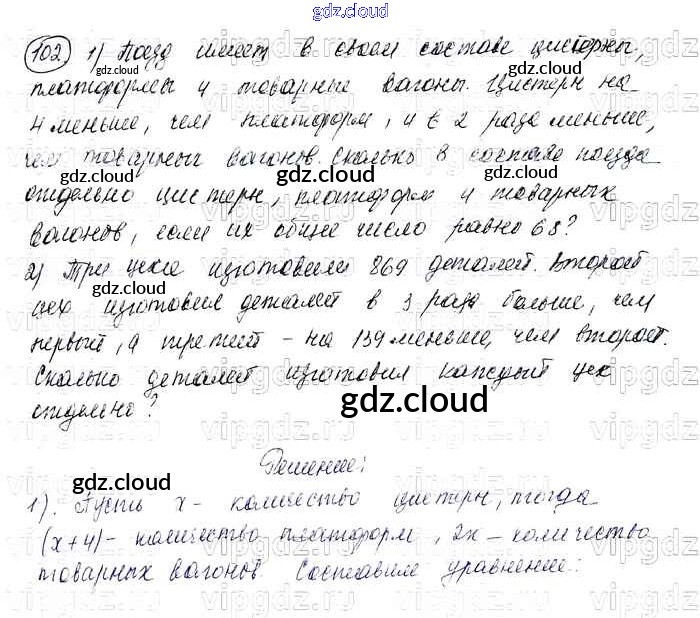 gdz.cloud
102 1) Поезд имеет в своем составе цистерны,
платформы и товарные вагоны. Цистерн на
4 меньше, чем платформ, и в 2 раза меньше,
чем товарных вагонов. Сколько в составе поезда
отдельно цистерн, платформ и товарных
вагонов, если их общее число равно 68?
2) Три цеха изготовили 869 деталей. Второй
цех изготовил деталей в 3 раза больше, чем
первый, а третий - на 139 меньше, чем второй.
Сколько деталей изготовил каждый цех
отдельно?
gdz.cloud
Решение:
1). Пусть x - количество цистерн, тогда
(x+4) - количество платформ, 2x - количество
товарных вагонов. Составим уравнение: